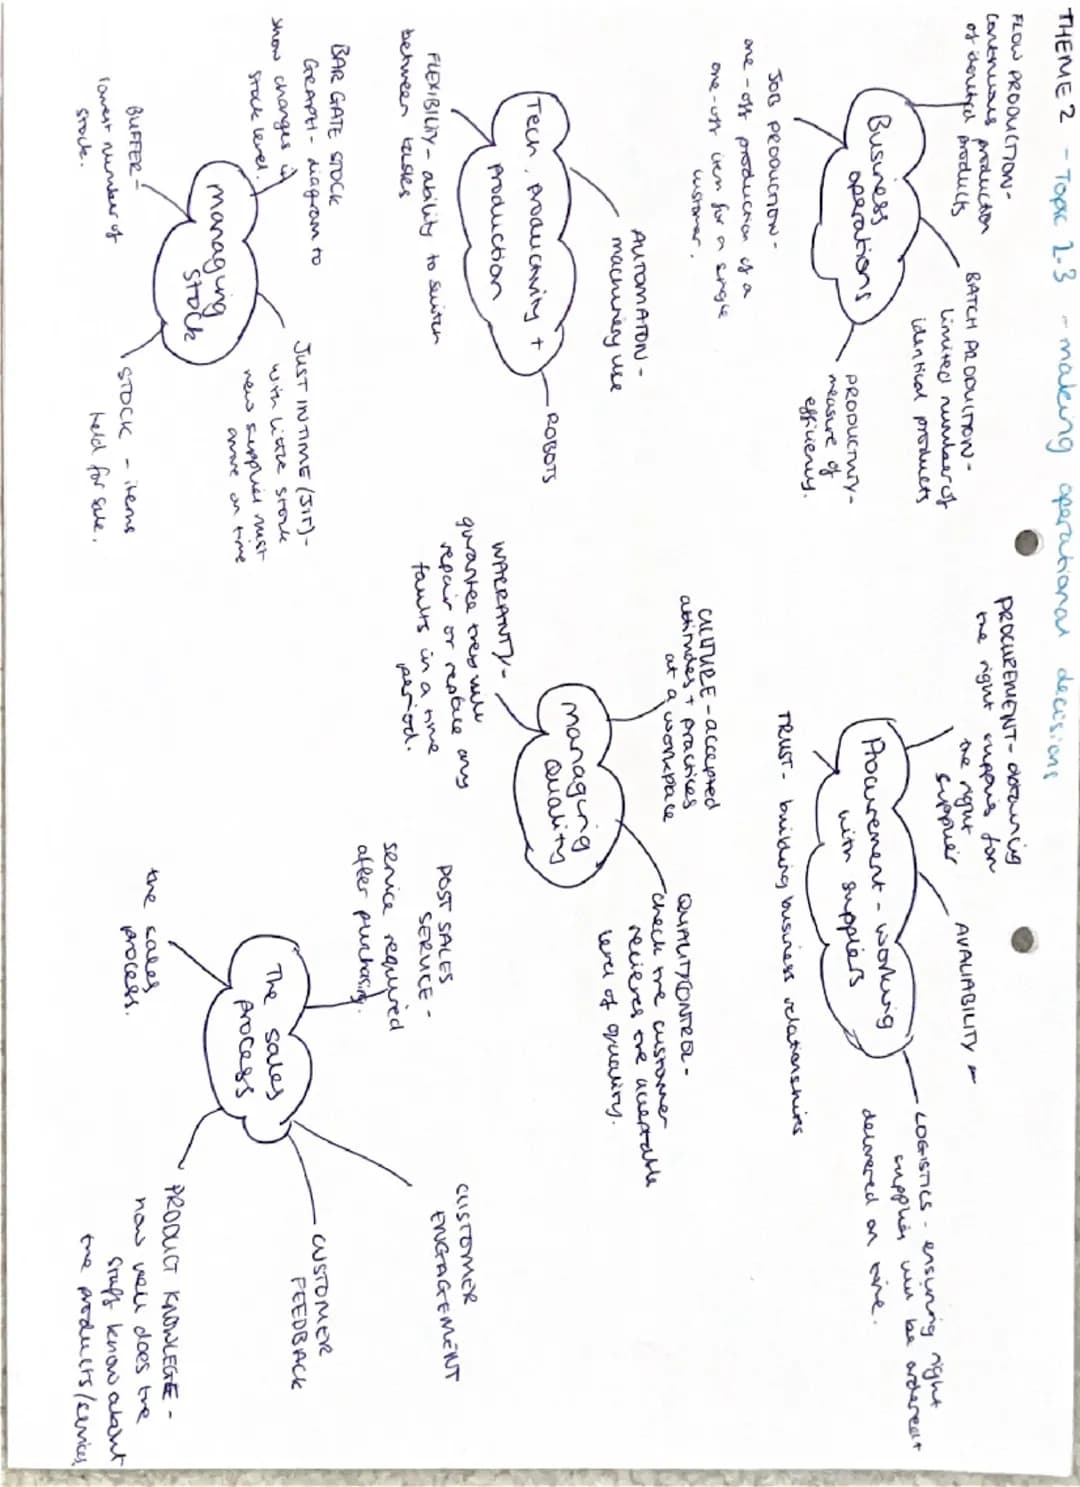 THEME 2 - Topic 2.3 - making operational decisions
FLOW PRODUCTION -
continuous production
of identical products
Business
operations
BATCH PRODUCTION -
limited number of
identical products
JOB PRODUCTION -
one-off production of a
one-off item for a single
customer.
PRODUCTIVITY -
measure of
efficiency.
PROCUREMENT - obtaining
the right supplies from
the right
supplier
Procurement - working
with suppliers
AVALIABILITY -
LOGISTICS - ensuring right
supplies will be ordered +
delivered on time.
TRUST - building business relationships
Tech, productivity +
production
AUTOMATON -
machinery use
ROBOTS
FLEXIBILITY - ability to switch
between tasks
managing
Quality
CULTURE - accepted
attitudes + practices
at a workplace
QUALITY CONTROL -
check the customer
recieves the acceptable
level of quality.
WARRANTY -
guarantee they will
repair or replace any
faults in a time
period.
managing
stock
BAR GATE STOCK
GRAPH - diagram to
show changes in
stock level.
JUST IN TIME (JIT) -
with little stock
new supplies must
arrive on time
BUFFER -
lowest number of
stock.
STOCK - items
held for sale.
The sales
process
POST SALES
SERVICE -
service required
after purchasing.
CUSTOMER
ENGAGEMENT
CUSTOMER
FEEDBACK
the sales
process.
PRODUCT KNOWLEGE -
how well does the
staff know about
the products/services